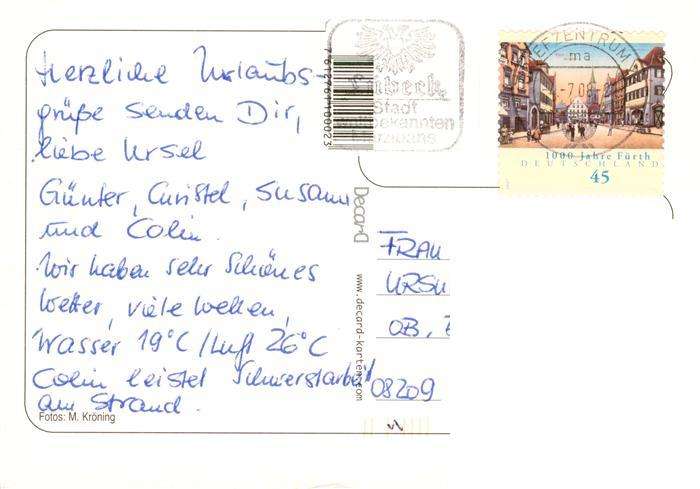 Herzliche Urlaubs-
grüße senden Dir,
liebe Ursel
Günter, Christel, Susann
und Colin.
Wir haben sehr schönes
Wetter, viele Wellen,
Wasser 19°C / Luft 26°C
Colin leistet Schwerstarbeit
am Strand.
Fotos: M. Kröning
Stadt
DecarD
www.decard-karten.com
1000 Jahre Fürth
DEUTSCHLAND
45
FRAU
URSU
OB,
08209